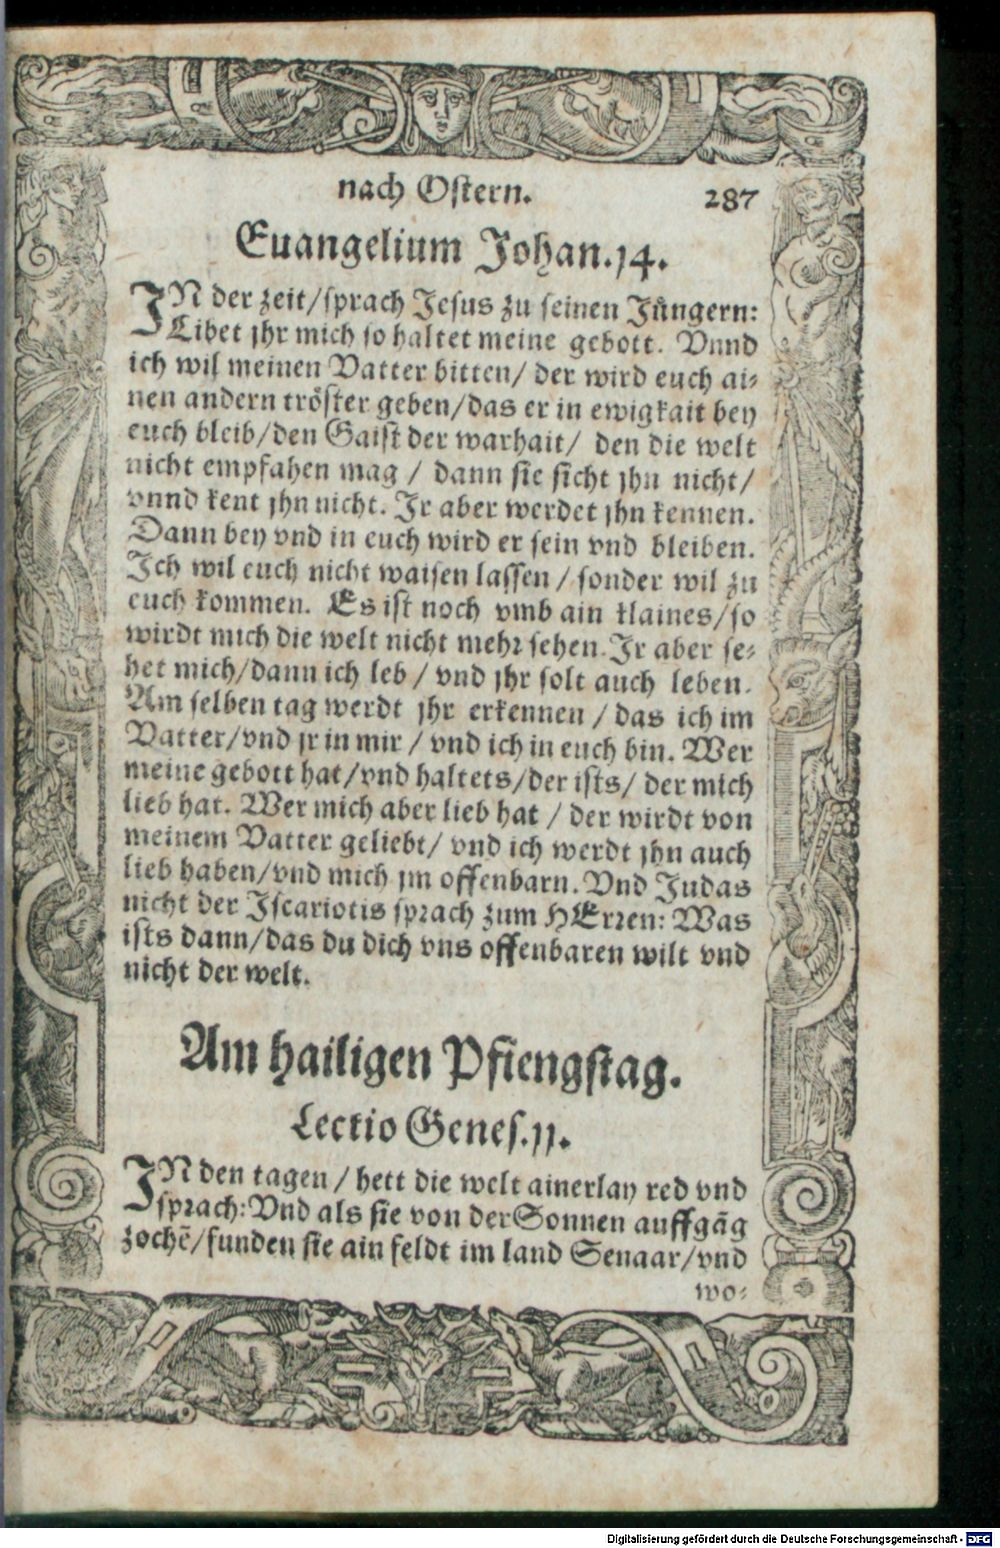 nach Ostern. 287
Euangelium Johan.14.
IN der zeit/sprach Jesus zu seinen Jüngern:
Libet jhr mich so haltet meine gebott. Vnnd
ich wil meinen Vatter bitten/ der wird euch ai-
nen andern tröster geben/das er in ewigkait bey
euch bleib/den Gaist der warhait/ den die welt
nicht empfahen mag / dann sie sicht jhn nicht/
vnnd kent jhn nicht. Jr aber werdet jhn kennen.
Dann bey vnd in euch wird er sein vnd bleiben.
Ich wil euch nicht waisen lassen / sonder wil zu
euch kommen. Es ist noch vmb ain klaines/so
wirdt mich die welt nicht mehr sehen. Jr aber se-
het mich/dann ich leb / vnd jhr solt auch leben.
Am selben tag werdt jhr erkennen / das ich im
Vatter/vnd jr in mir / vnd ich in euch bin. Wer
meine gebott hat/vnd haltets/der ists/ der mich
lieb hat. Wer mich aber lieb hat / der wirdt von
meinem Vatter geliebt/ vnd ich werdt jhn auch
lieb haben/vnd mich jm offenbarn. Vnd Judas
nicht der Iscariotis sprach zum HErren: Was
ists dann/das du dich vns offenbaren wilt vnd
nicht der welt.
Am hailigen Pfiengstag.
Lectio Genes.11.
IN den tagen / hett die welt ainerlay red vnd
sprach: Vnd als sie von der Sonnen auffgãg
zochẽ/funden sie ain feldt im land Senaar/vnd
wo-
Digitalisierung gefördert durch die Deutsche Forschungsgemeinschaft - DFG